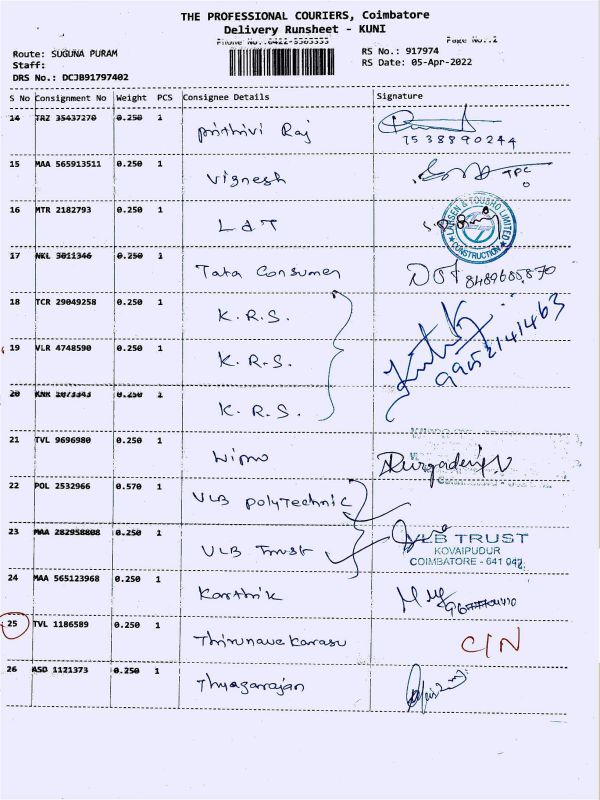 THE PROFESSIONAL COURIERS, Coimbatore
Delivery Runsheet - KUNI
Phone No.:0422-3303333 Page No.:2
Route: SUGUNA PURAM RS No.: 917974
Staff: RS Date: 05-Apr-2022
DRS No.: DCJB91797402
S No Consignment No Weight PCS Consignee Details Signature
14 TRZ 35437270 0.250 1 Prithivi Raj
7538890244
15 MAA 565913511 0.250 1 Vignesh TPC
16 MTR 2182793 0.250 1 L&T LARSEN & TOUBRO LIMITED CONSTRUCTION
17 NKL 3011346 0.250 1 Tata Consumer
18 TCR 29049258 0.250 1 K.R.S.
19 VLR 4748590 0.250 1 K.R.S. 9952141463
20 KNR 1073343 0.250 1 K.R.S.
21 TVL 9696980 0.250 1 Wipro Durgadevi V
22 POL 2532966 0.570 1 VLB Polytechnic
23 MAA 282958808 0.250 1 VLB Trust VLB TRUST
KOVAIPUDUR
COIMBATORE - 641 042.
24 MAA 565123968 0.250 1 Karthik
25 TVL 1186589 0.250 1 Thirunavukarasu C/N
26 ASD 1121373 0.250 1 Thyagarajan